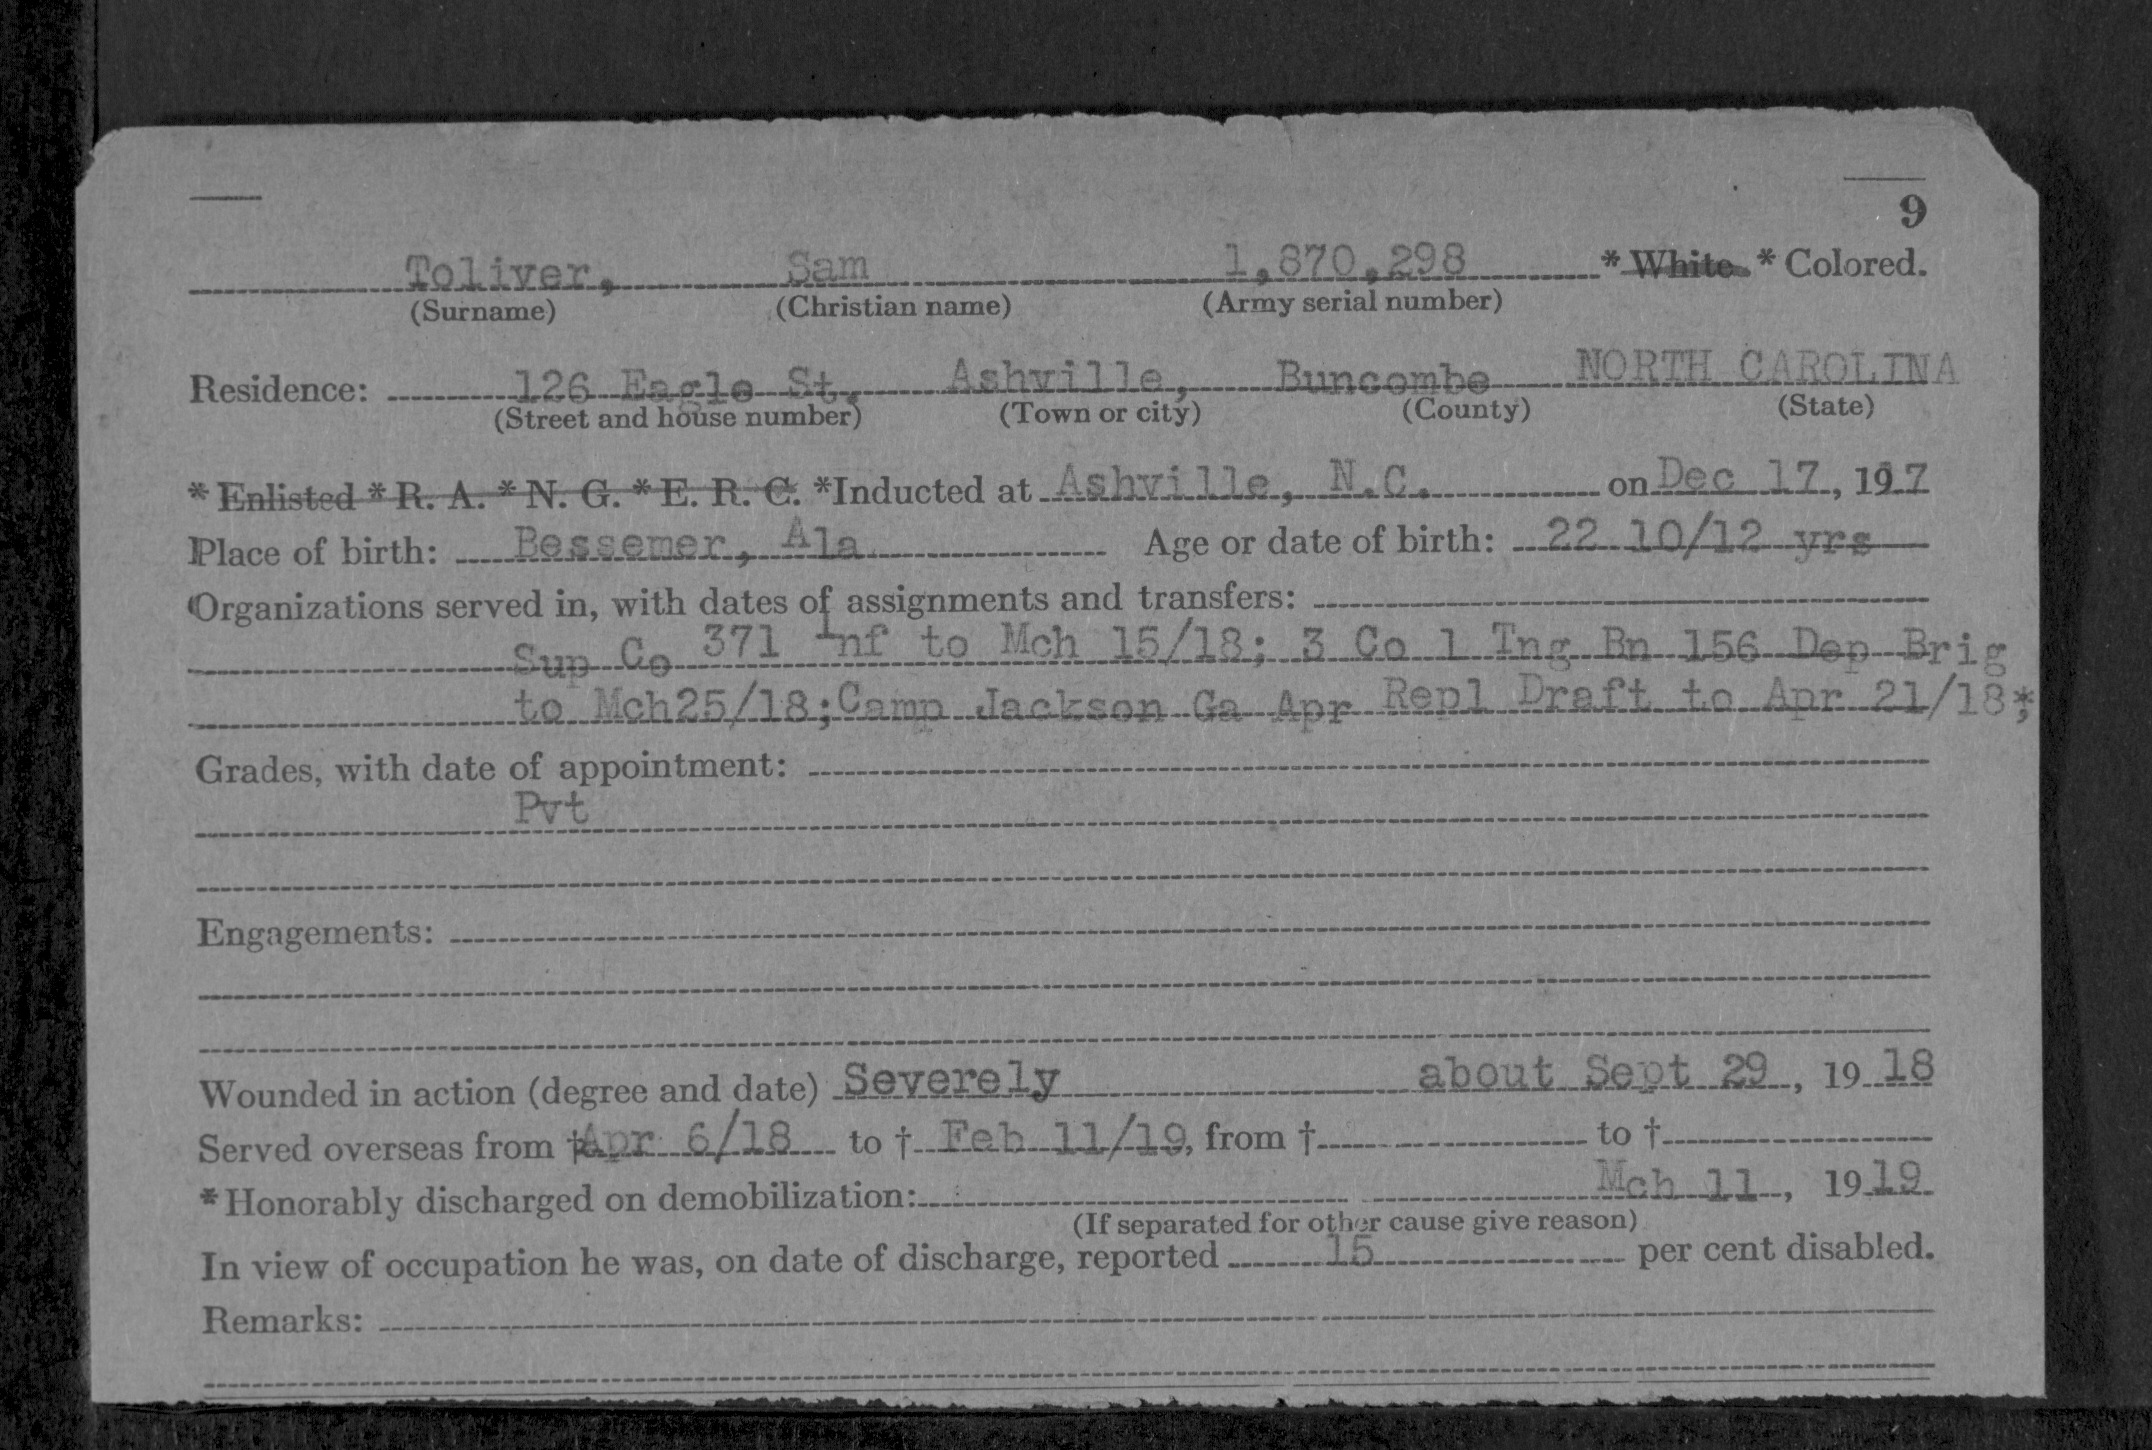 9
Toliver, Sam 1,870,298 * White. * Colored.
(Surname) (Christian name) (Army serial number)
Residence: 126 Eagle St, Ashville, Buncombe NORTH CAROLINA
(Street and house number) (Town or city) (County) (State)
* Enlisted * R. A. * N. G. * E. R. C. *Inducted at Ashville, N.C. on Dec 17, 1917
Place of birth: Bessemer, Ala Age or date of birth: 22 10/12 yrs
Organizations served in, with dates of assignments and transfers:
Sup Co 371 Inf to Mch 15/18; 3 Co 1 Tng Bn 156 Dep Brig
to Mch25/18;Camp Jackson Ga Apr Repl Draft to Apr 21/18*;
Grades, with date of appointment:
Pvt
Engagements:
Wounded in action (degree and date) Severely about Sept 29, 1918
Served overseas from † Apr 6/18 to † Feb 11/19, from † to †
* Honorably discharged on demobilization: Mch 11, 1919
(If separated for other cause give reason)
In view of occupation he was, on date of discharge, reported 15 per cent disabled.
Remarks: